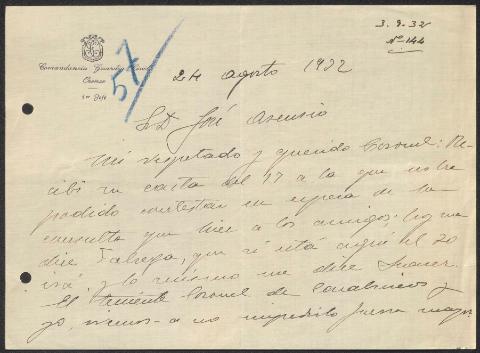 3. 9. 32
Nº 144
Comandancia Guardia Civil
Orense
1er Jefe
57
24 agosto 1932
S. D. José Asensio
Mi respetado y querido Coronel: Re-
cibí su carta del 17 a la que no he
podido contestar en espera de la
consulta que hice a los amigos; hoy me
dice Fábrega, que si está aquí el 20
irá, y lo mismo me dice Suarez.
El teniente Coronel de Carabineros y
yo, iremos a no impedirlo fuerza mayor